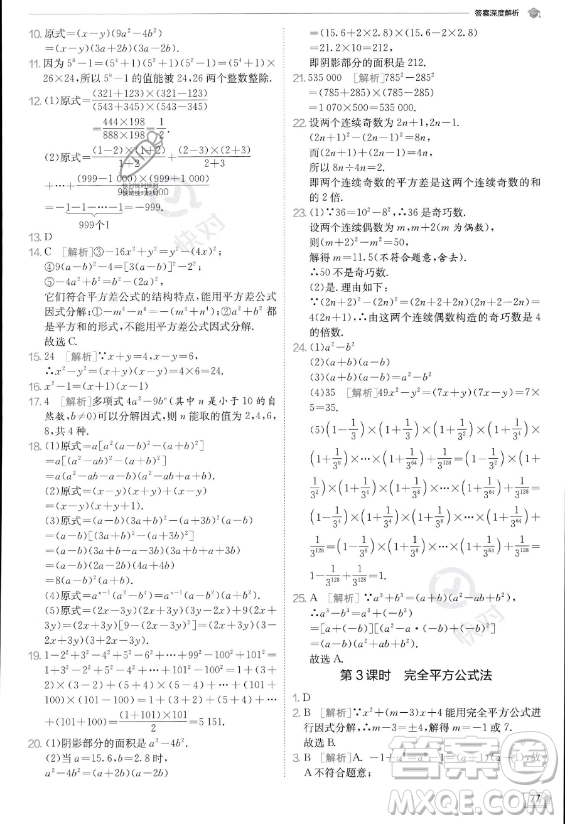 答案深度解析
10. 原式=(x-y)(9a²-4b²)
=(x-y)(3a+2b)(3a-2b).
11. 因为5⁸-1=(5⁴+1)(5⁴-1)=(5⁴+1)(5²+1)(5²-1)=(5⁴+1)×
26×24,所以5⁸-1的值能被24、26两个整数整除.
12. (1)原式=(321+123)×(321-123)/(543+345)×(543-345)
=444×198/888×198=1/2.
(2)原式=(1-2)×(1+2)/1+2+(2-3)×(2+3)/2+3
+…+(999-1 000)×(999+1 000)/999+1 000
=-1-1-…-1=-999.
999个1
13. D
14. C [解析]③-16x²+y²=y²-(4x)²;
④9(a-b)²-4=[3(a-b)]²-2²;
⑤-4a²+b²=b²-(2a)².
它们符合平方差公式的结构特点,能用平方差公式
因式分解;①-m⁴-n⁴=-(m⁴+n⁴);②a²+b²都
是平方和的形式,不能用平方差公式因式分解.
故选C.
15. 24 [解析]∵x+y=4,x-y=6,
∴x²-y²=(x+y)(x-y)=4×6=24.
16. x²-1=(x+1)(x-1)
17. 4 [解析]多项式4a²-9bⁿ(其中n是小于10的自
然数,b≠0)可以分解因式,则n能取的值为2,4,6,
8,共4种.
18. (1)原式=a[a²(a-b)²-(a-b)²]
=a[(a²-ab)²-(a-b)²]
=a(a²-ab-a+b)(a²-ab+a-b).
(2)原式=(x-y)(x+y)+(x-y)
=(x-y)(x+y+1).
(3)原式=(a-b)(3a+b)²-(a+3b)²(a-b)
=(a-b)[(3a+b)²-(a+3b)²]
=(a-b)(3a+b+a+3b)(3a+b-a-3b)
=(a-b)(4a+4b)(2a-2b)
=8(a-b)²(a+b).
19. 1+3²-2²+5²-4²+…+99²-100²+101²=
1+3²-2²+5²-4²+…+101²-100²=1+(3+
2)×(3-2)+(5+4)×(5-4)+…+(101+
100)×(101-100)=1+(3+2)+(5+4)+…+
(101+100)=(1+101)×101/2=5 151.
20. (1)阴影部分的面积是a²-4b².
(2)当a=15.6,b=2.8时,
a²-4b²=(a+2b)(a-2b)
=(15.6+2×2.8)×(15.6-2×2.8)
=21.2×10=212.
即阴影部分的面积是212.
21. 535 000 [解析]785²-285²
=(785+285)×(785-285)
=1 070×500=535 000.
22. 设两个连续奇数为2n+1,2n-1.
(2n+1)²-(2n-1)²=8n.
而(2n+1)+(2n-1)=4n.
所以8n=2·4n.
即两个连续奇数的平方差是这两个连续奇数的和
的2倍.
23. (1)∵36=10²-8²,∴36是奇巧数.
设两个连续偶数为m,m+2(m为偶数),
则(m+2)²-m²=50.
解得m=11.5(不符合题意,舍去).
∴50不是奇巧数.
(2)是.理由如下:
∵(2n+2)²-(2n)²=(2n+2+2n)(2n+2-2n)=
4(2n+1),∴这两个连续偶数构造的奇巧数是4
的倍数.
24. (1)a²-b²
(2)(a+b)(a-b)
(3)(a+b)(a-b)=a²-b²
(4)35 [解析]49x²-y²=(7x+y)(7x-y)=7×
5=35.
25. A [解析]∵a³+b³=(a+b)(a²-ab+b²),
∴a³-b³=a³+(-b³)=a³+(-b)³
=[a+(-b)][a²-a·(-b)+(-b)²]
=(a-b)(a²+ab+b²).
故选A.
第3课时 完全平方公式法
1. D
2. B [解析]∵x²+(m-3)x+4能用完全平方公式进
行因式分解,∴m-3=±4,解得m=-1或7.
故选B.